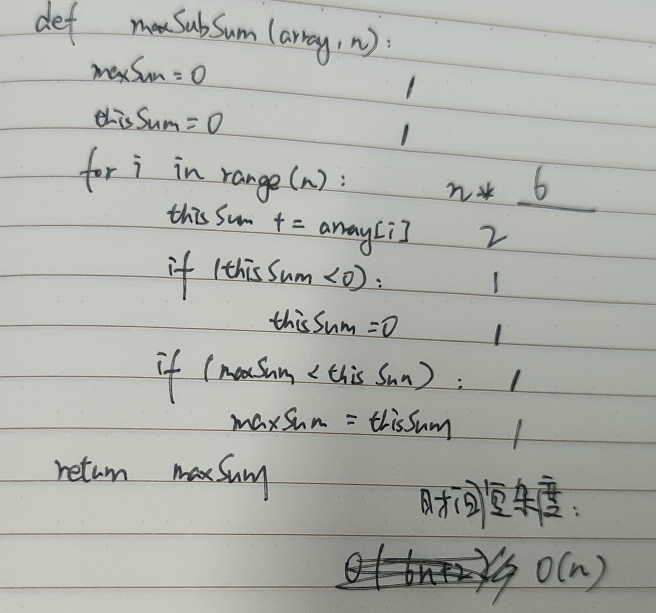 def maxSubSum(array, n):
maxSum = 0 1
thisSum = 0 1
for i in range(n): n* 6
thisSum += array[i] 2
if (thisSum < 0): 1
thisSum = 0 1
if (maxSum < thisSum): 1
maxSum = thisSum 1
return maxSum
时间复杂度:
O(n)